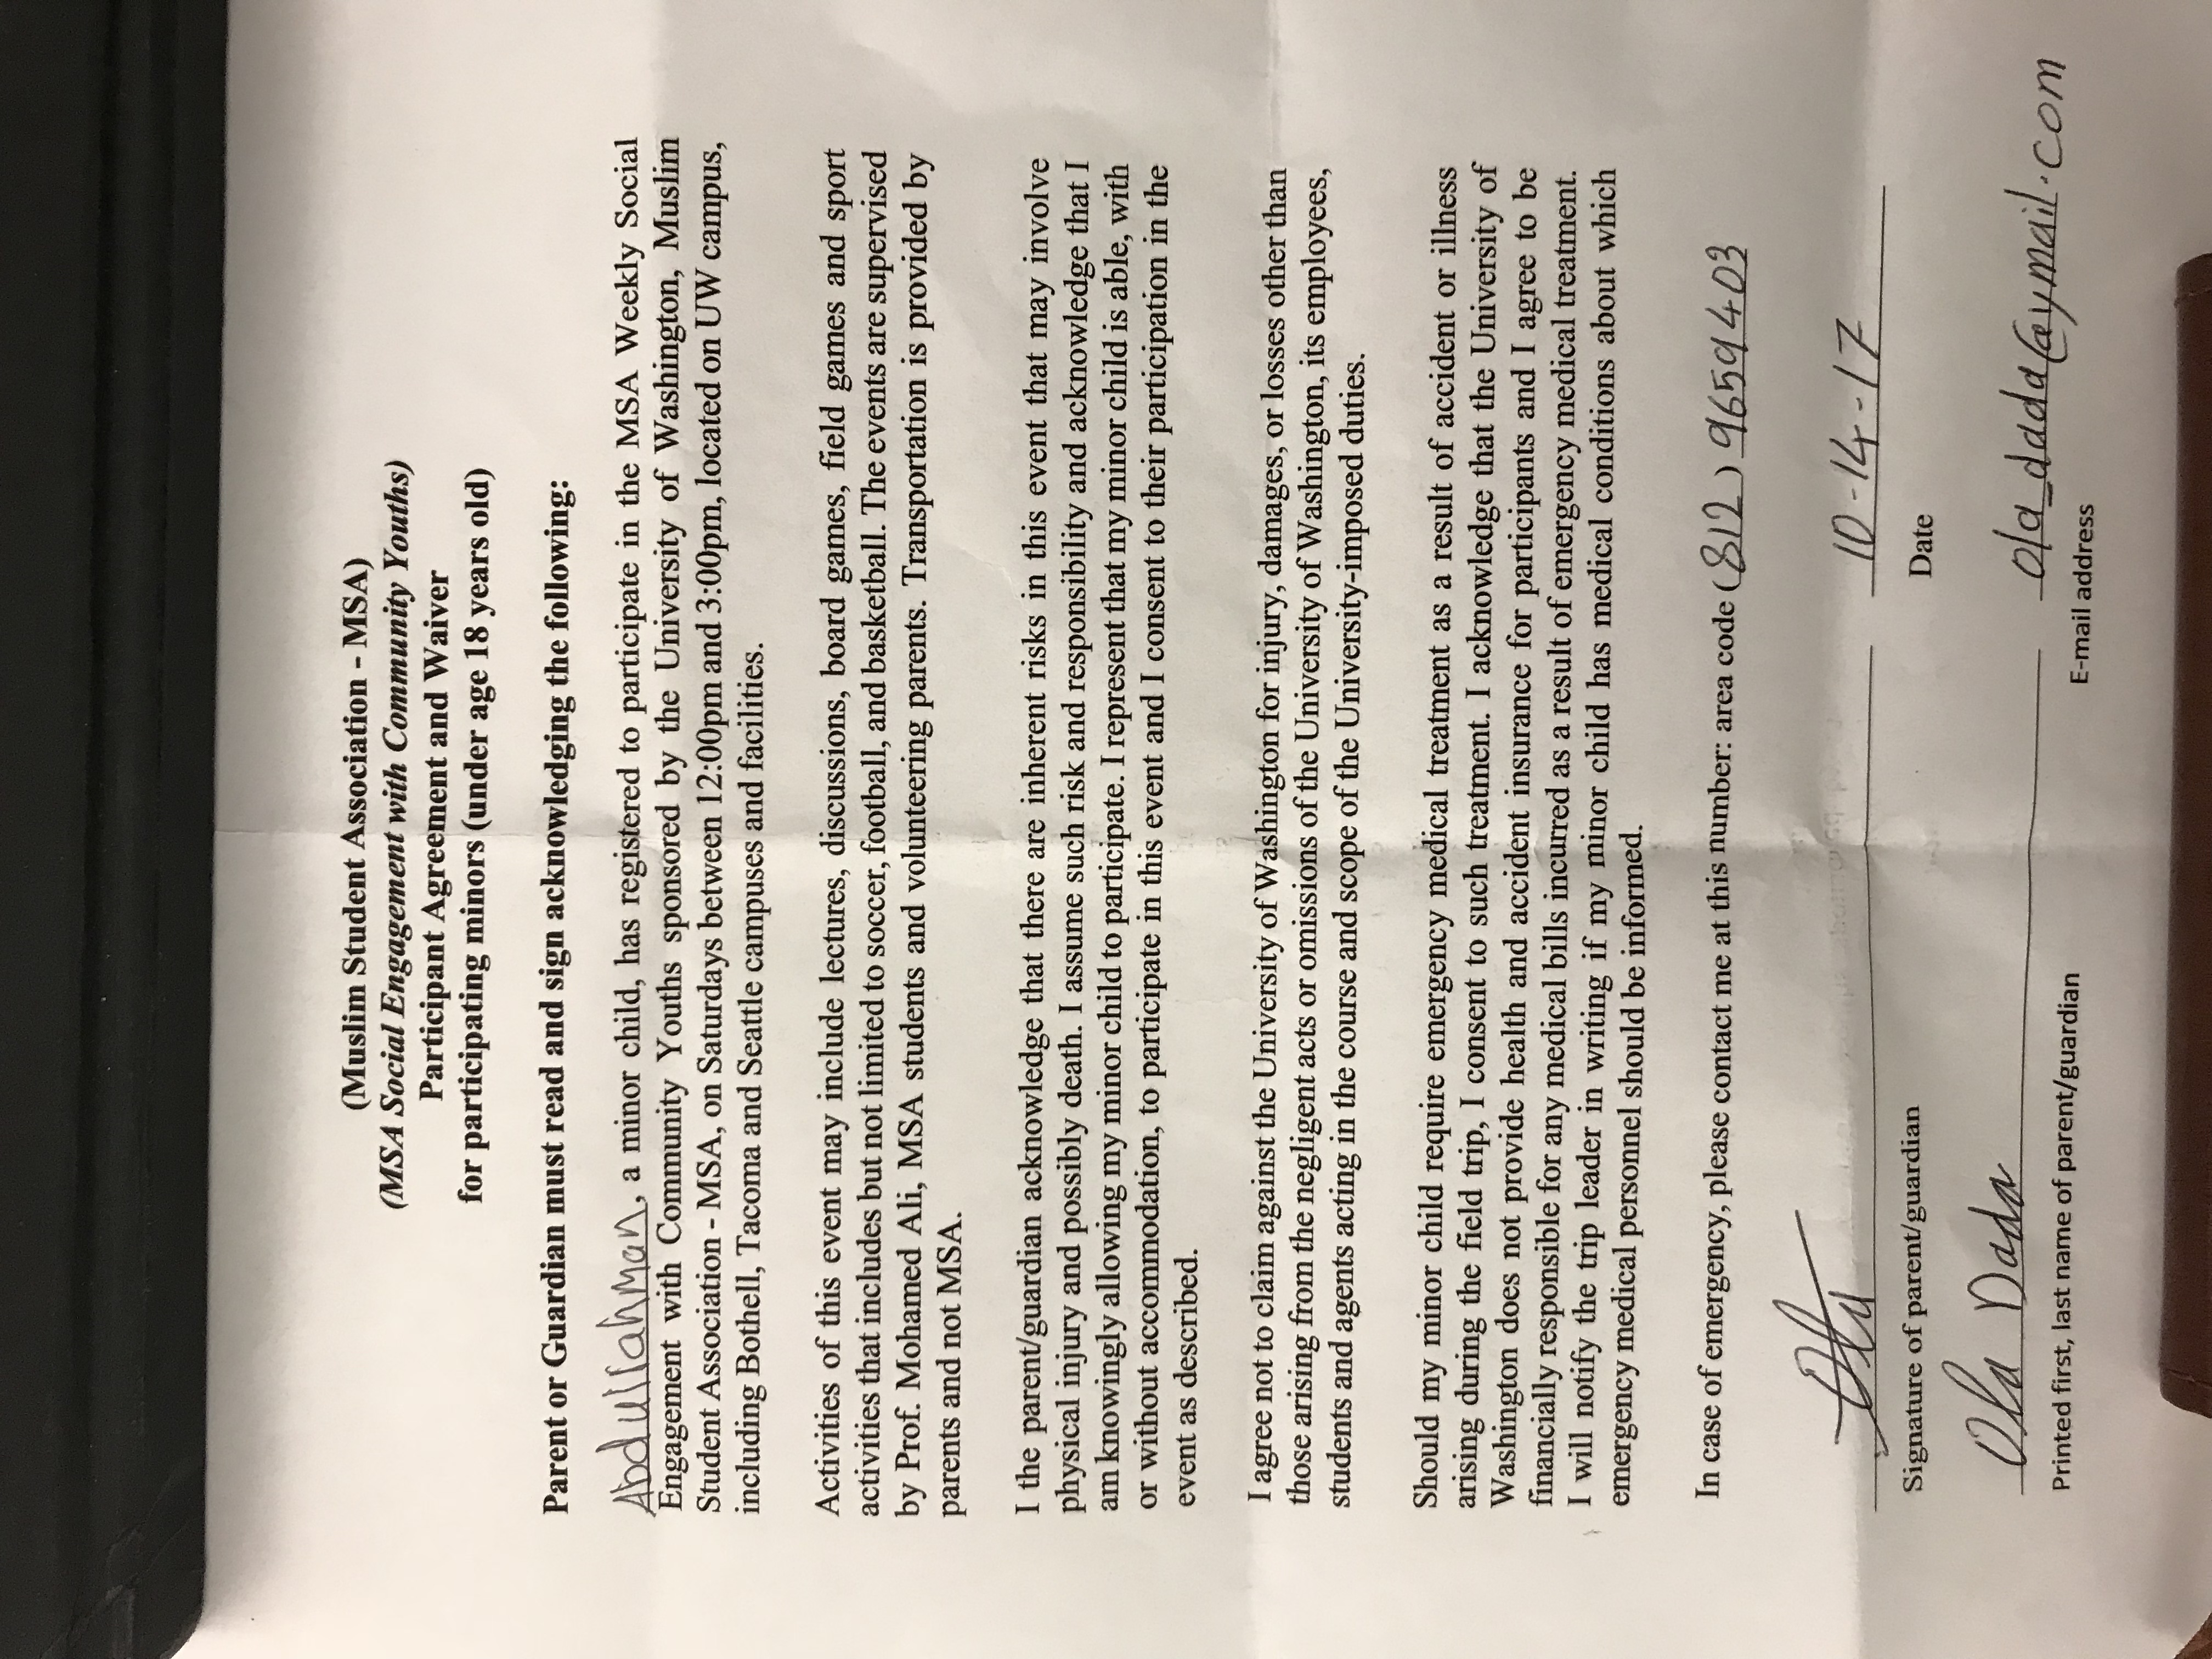 (Muslim Student Association - MSA)
(MSA Social Engagement with Community Youths)
Participant Agreement and Waiver
for participating minors (under age 18 years old)
Parent or Guardian must read and sign acknowledging the following:
Abdullahman, a minor child, has registered to participate in the MSA Weekly Social
Engagement with Community Youths sponsored by the University of Washington, Muslim
Student Association - MSA, on Saturdays between 12:00pm and 3:00pm, located on UW campus,
including Bothell, Tacoma and Seattle campuses and facilities.
Activities of this event may include lectures, discussions, board games, field games and sport
activities that includes but not limited to soccer, football, and basketball. The events are supervised
by Prof. Mohamed Ali, MSA students and volunteering parents. Transportation is provided by
parents and not MSA.
I the parent/guardian acknowledge that there are inherent risks in this event that may involve
physical injury and possibly death. I assume such risk and responsibility and acknowledge that I
am knowingly allowing my minor child to participate. I represent that my minor child is able, with
or without accommodation, to participate in this event and I consent to their participation in the
event as described.
I agree not to claim against the University of Washington for injury, damages, or losses other than
those arising from the negligent acts or omissions of the University of Washington, its employees,
students and agents acting in the course and scope of the University-imposed duties.
Should my minor child require emergency medical treatment as a result of accident or illness
arising during the field trip, I consent to such treatment. I acknowledge that the University of
Washington does not provide health and accident insurance for participants and I agree to be
financially responsible for any medical bills incurred as a result of emergency medical treatment.
I will notify the trip leader in writing if my minor child has medical conditions about which
emergency medical personnel should be informed.
In case of emergency, please contact me at this number: area code (812) 9659403
Ola 10-14-17
Signature of parent/guardian Date
Ola Dada ola_dada@ymail.com
Printed first, last name of parent/guardian E-mail address